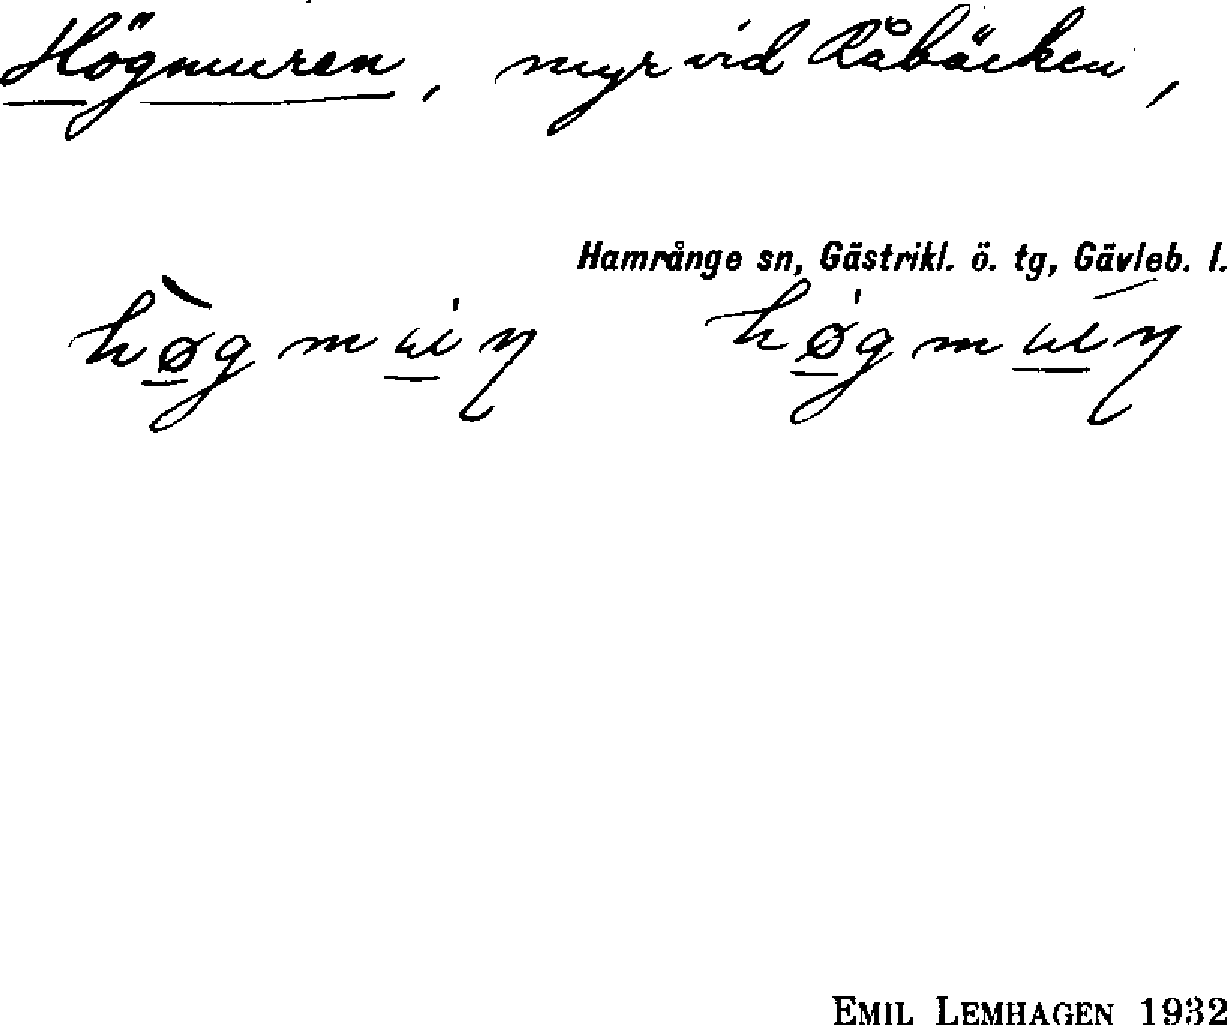 Högmuren, myr vid Råbäcken,
Hamrånge sn, Gästrikl. ö. tg, Gävleb. l.
EMIL LEMHAGEN 1932